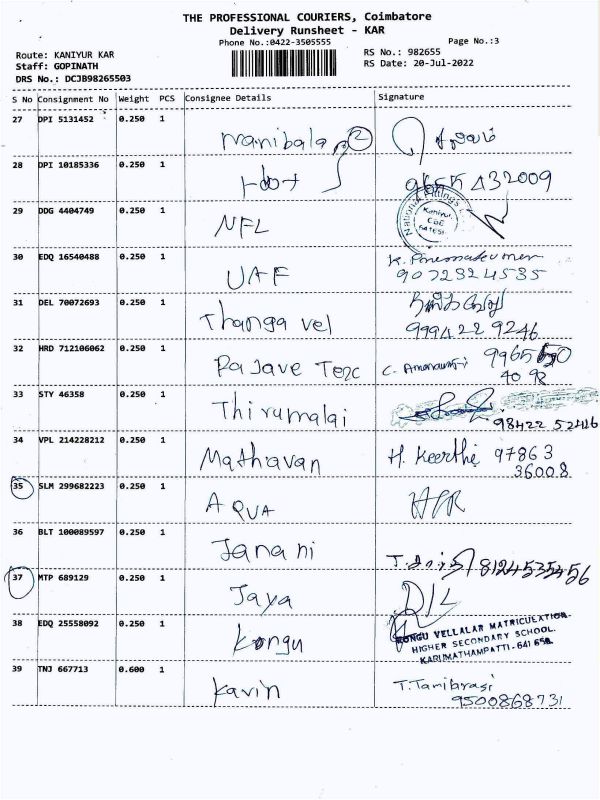 THE PROFESSIONAL COURIERS, Coimbatore
Delivery Runsheet - KAR
Phone No.:0422-3505555
Page No.:3
Route: KANIYUR KAR
RS No.: 982655
Staff: GOPINATH
RS Date: 20-Jul-2022
DRS No.: DCJB98265503
S No Consignment No Weight PCS Consignee Details Signature
27 DPI 5131452 0.250 1 Manibala 2
28 DPI 10185336 0.250 1
29 DDG 4404749 0.250 1 NFL
Kaniyur
CBE
30 EDQ 16540488 0.250 1 UAF
9072324535
31 DEL 70072693 0.250 1 Thanga vel
9994229246
32 HRD 712106062 0.250 1 Rajave Tex C. 9965
40 92
33 STY 46358 0.250 1 Thirumalai
98422 52416
34 VPL 214228212 0.250 1 Mathavan H. Keerthi 97863
36008
35 SLM 299682223 0.250 1 AQUA
36 BLT 100089597 0.250 1 Janani 8124535456
37 MTP 689129 0.250 1 Jaya D/L
38 EDQ 25558092 0.250 1 Kongu KONGU VELLALAR MATRICULATION
HIGHER SECONDARY SCHOOL.
KARUMATHAMPATTI - 641 658.
39 TNJ 667713 0.600 1 Kavin T. Tamilarasi
9500868731